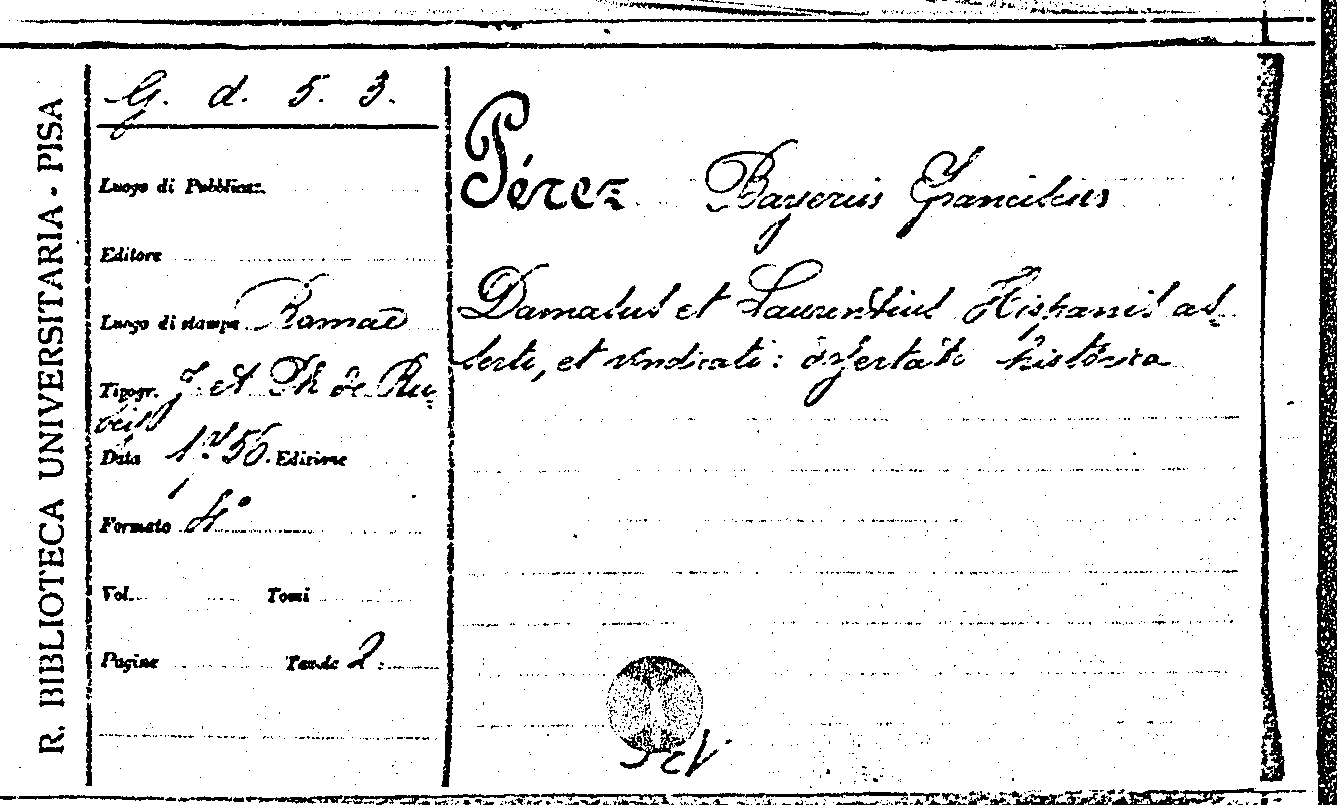 R. BIBLIOTECA UNIVERSITARIA - PISA
G. d. 5. 3.
Luogo di Pubblicaz.
Editore
Luogo di stampa Romae
Tipogr. J. et Ph de Ru-
beis
Data 1756. Edizione
Formato 4°
Vol. Tomi
Pagine Tavole 2.
Pérez Bayerius Franciscus
Damasus et Laurentius Hispanis as-
serti, et vindicati: dissertatio historica